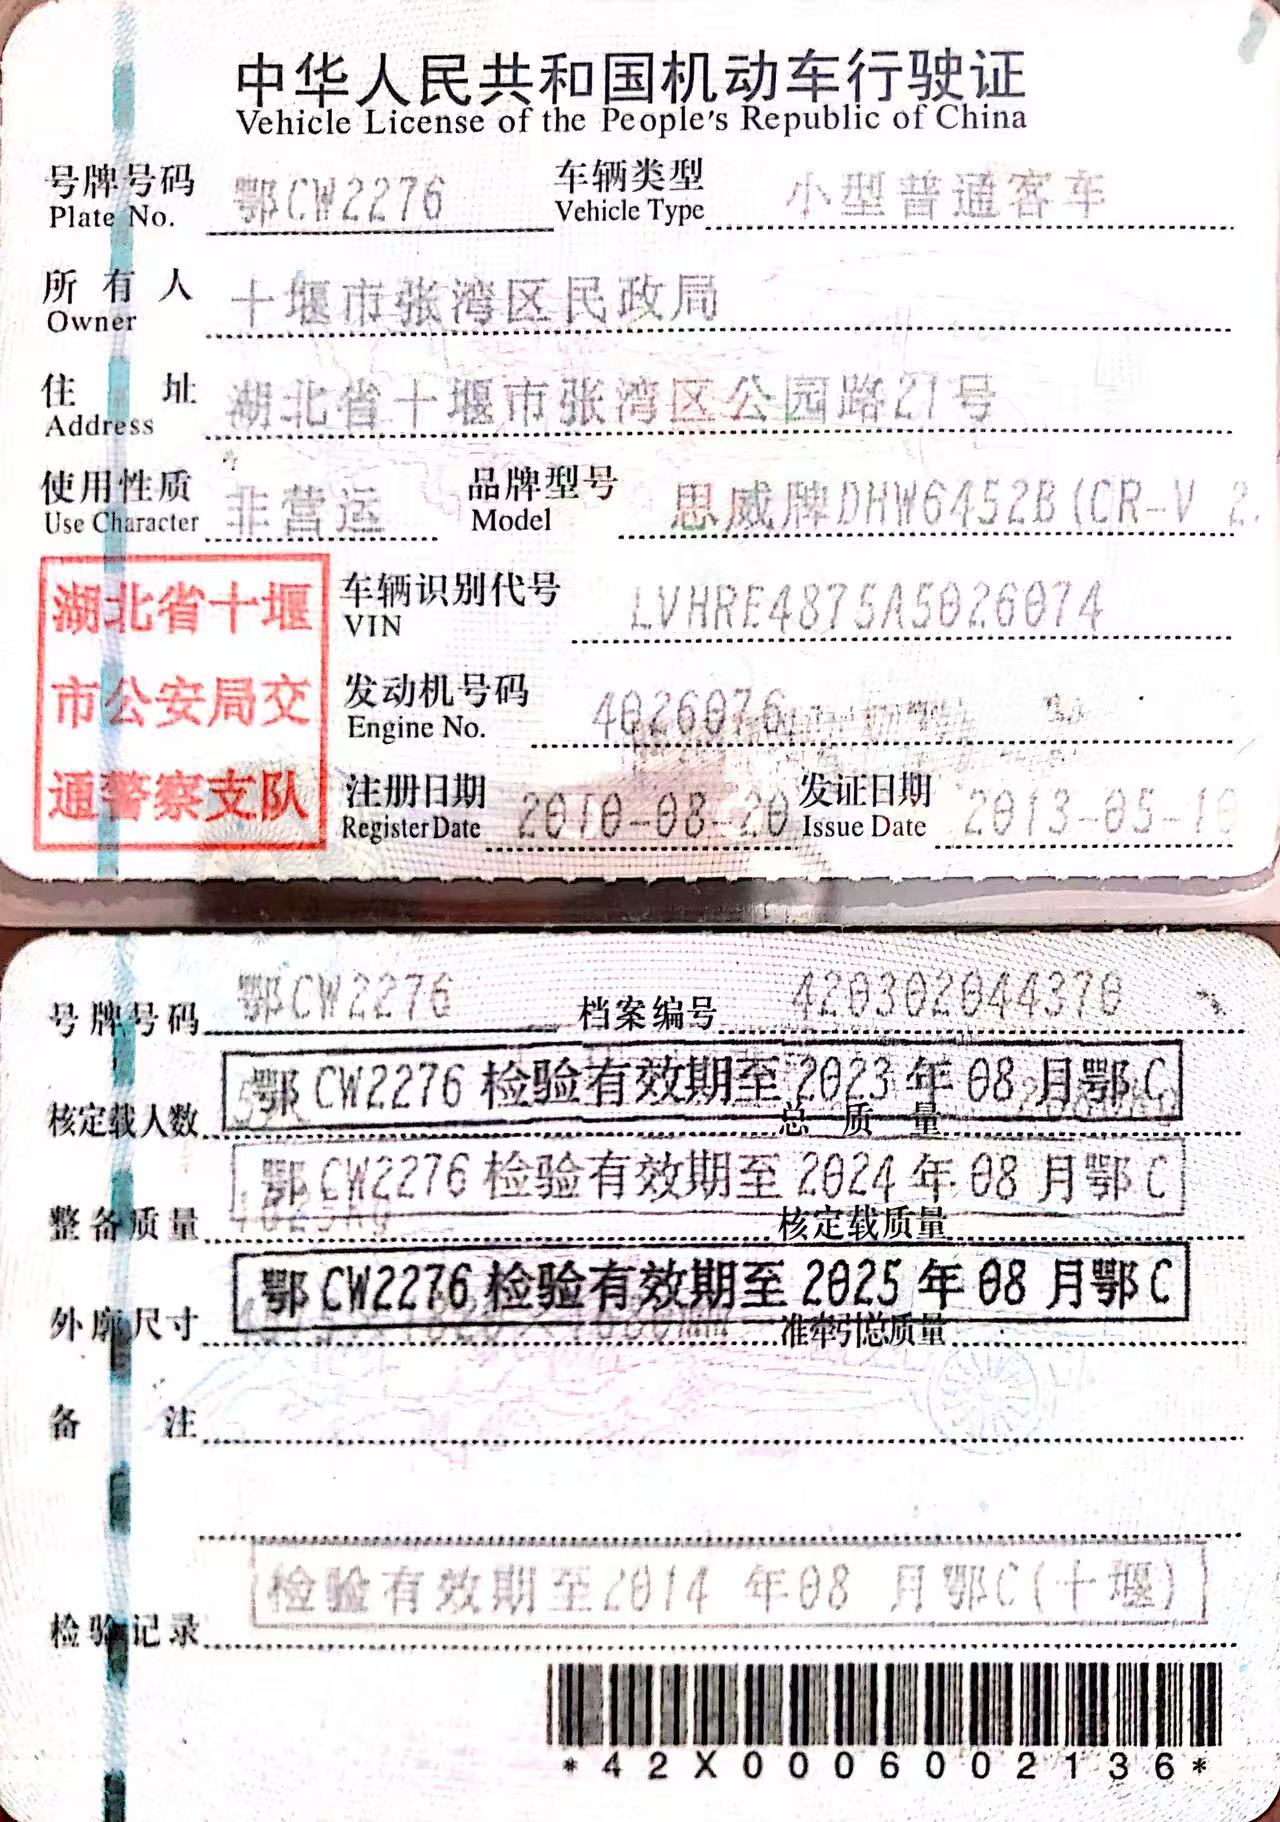 中华人民共和国机动车行驶证
Vehicle License of the People's Republic of China
号牌号码 鄂CW2276 车辆类型 小型普通客车
Plate No. Vehicle Type
所有人 十堰市张湾区民政局
Owner
住址 湖北省十堰市张湾区公园路21号
Address
使用性质 非营运 品牌型号 思威牌DHW6452B(CR-V 2.
Use Character Model
湖北省十堰
市公安局交
通警察支队
车辆识别代号 LVHRE4875A5026074
VIN
发动机号码 4026076
Engine No.
注册日期 2010-08-20 发证日期 2013-05-10
Register Date Issue Date
号牌号码 鄂CW2276 档案编号 420302044370
鄂CW2276检验有效期至2023年08月鄂C
核定载人数 总质量
鄂CW2276检验有效期至2024年08月鄂C
整备质量 核定载质量
鄂CW2276检验有效期至2025年08月鄂C
外廓尺寸 准牵引总质量
备注
检验有效期至2014年08月鄂C(十堰)
检验记录
*42X0006002136*